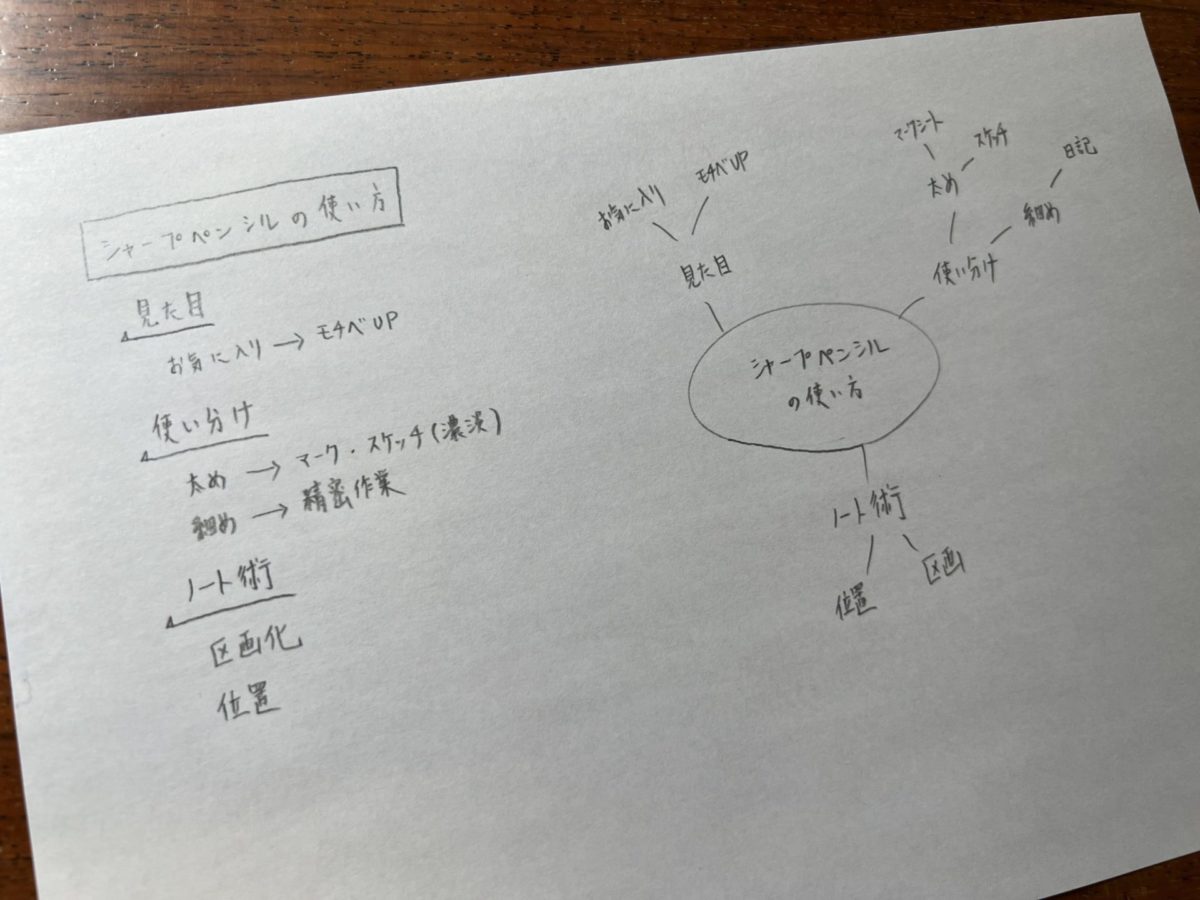 シャープペンシルの使い方
見た目
お気に入り → モチベUP
使い分け
太め → マーク・スケッチ(濃淡)
細め → 精密作業
ノート術
区画化
位置
マークシート
スケッチ
日記
太め
細め
使い分け
お気に入り
モチベUP
見た目
シャープペンシル
の使い方
ノート術
位置
区画